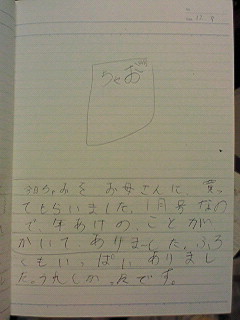 ちゃお
ちゃおを お母さんに、買っ
てもらいました。1月号なの
で、年あけの ことが
かいて ありました。ふろ
くもいっぱい ありまし
た。うれしかったです。